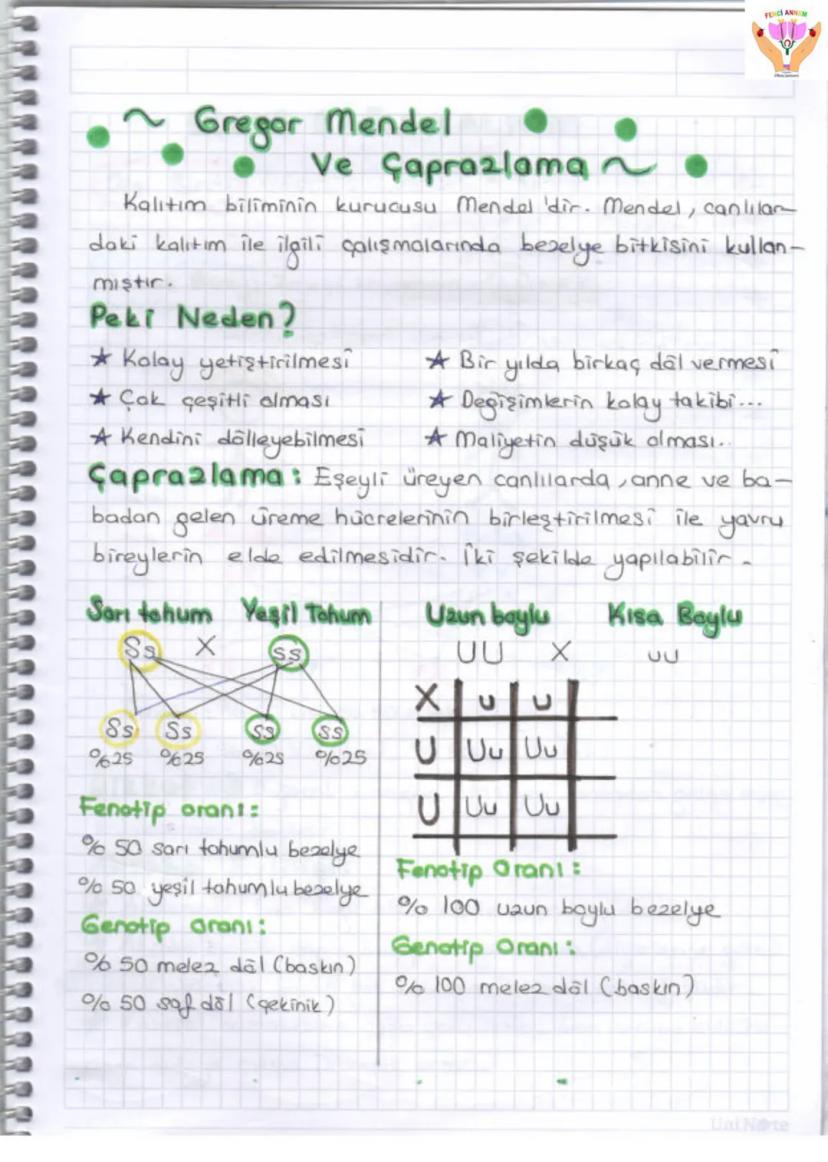 FENCİ ANNEM
~ Gregor Mendel
Ve Çaprazlama ~
Kalıtım biliminin kurucusu Mendel'dir. Mendel, canlılar-
daki kalıtım ile ilgili çalışmalarında bezelye bitkisini kullan-
mıştır.
Peki Neden?
★ Kolay yetiştirilmesi
★ Bir yılda birkaç döl vermesi
★ Çok çeşitli olması
★ Değişimlerin kolay takibi...
★ Kendini dölleyebilmesi
★ Maliyetin düşük olması..
Çaprazlama: Eşeyli üreyen canlılarda, anne ve ba-
badan gelen üreme hücrelerinin birleştirilmesi ile yavru
bireylerin elde edilmesidir. İki şekilde yapılabilir.
Sarı tohum Yeşil Tohum
Ss X ss
Ss Ss ss ss
%25 %25 %25 %25
Fenotip oranı:
% 50 sarı tohumlu bezelye
% 50 yeşil tohumlu bezelye
Genotip oranı:
% 50 melez döl (baskın)
% 50 saf döl (çekinik)
Uzun boylu Kısa Boylu
UU X uu
X u u
U Uu Uu
U Uu Uu
Fenotip Oranı:
% 100 uzun boylu bezelye
Genotip Oranı:
% 100 melez döl (baskın)
UniNote